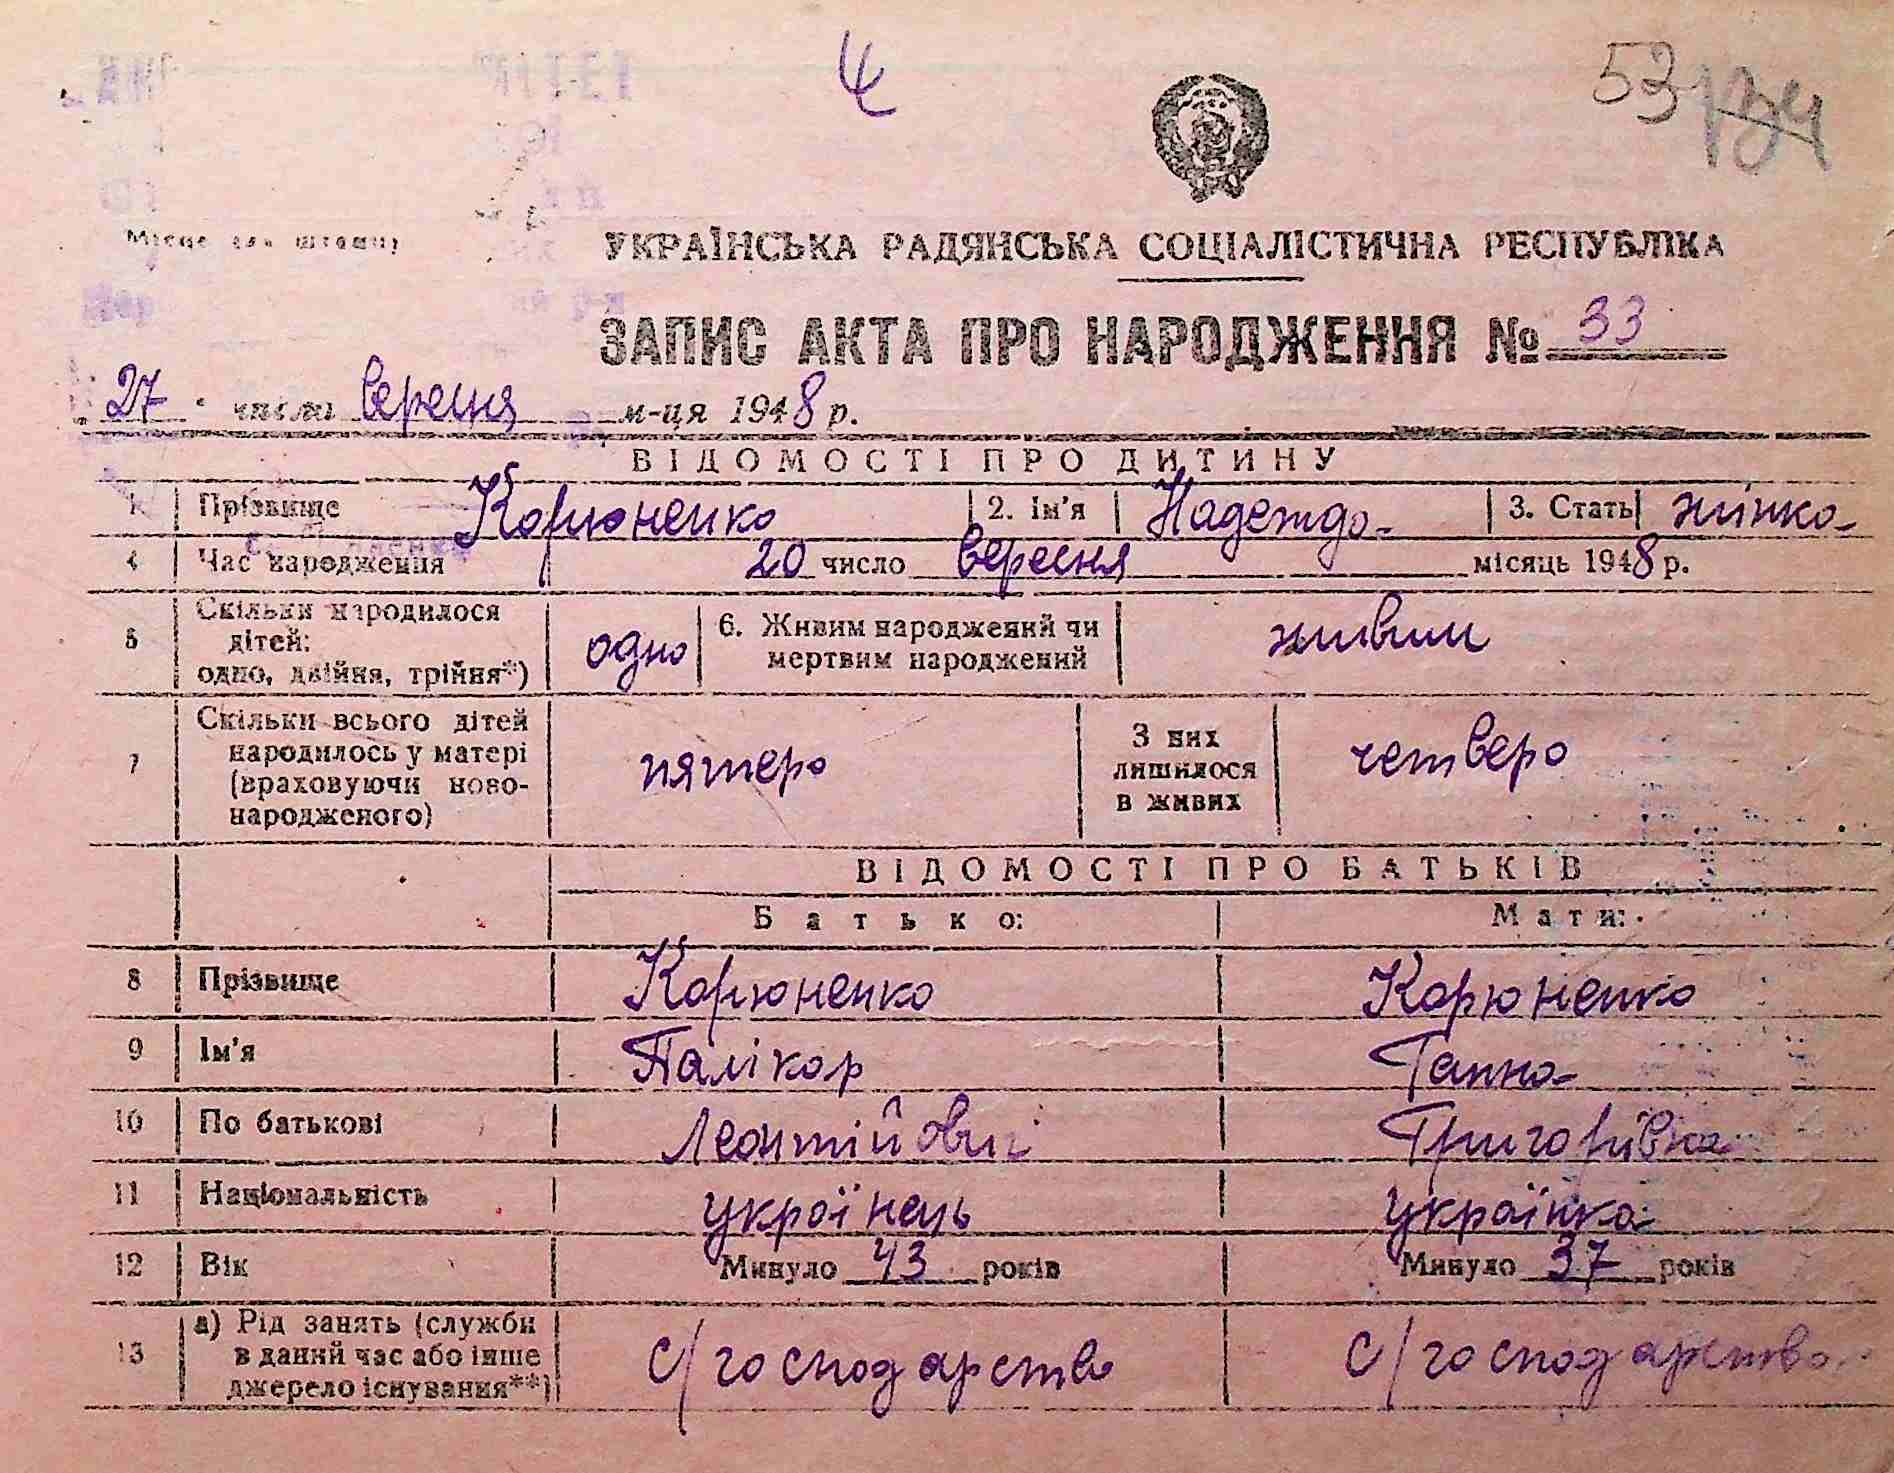 53
Місце для штампу
УКРАЇНСЬКА РАДЯНСЬКА СОЦІАЛІСТИЧНА РЕСПУБЛІКА
ЗАПИС АКТА ПРО НАРОДЖЕННЯ № 33
27 числа вересня м-ця 1948 р.
ВІДОМОСТІ ПРО ДИТИНУ
1 Прізвище Корюненко 2. Ім'я Надежда 3. Стать жінка
4 Час народження 20 число вересня місяць 1948 р.
5 Скільки народилося
дітей:
одно, двійня, трійня*) одно
6. Живим народжений чи
мертвим народжений живим
7 Скільки всього дітей
народилось у матері
(враховуючи ново-
народженого) пятеро
З них
лишилося
в живих четверо
ВІДОМОСТІ ПРО БАТЬКІВ
Батько: Мати:
8 Прізвище Корюненко Корюненко
9 Ім'я Палікар Ганна
10 По батькові Леонтійович Григорівна
11 Національність українець українка
12 Вік Минуло 43 років Минуло 37 років
13 а) Рід занять (служби
в даний час або інше
джерело існування**) с/господарство с/господарство